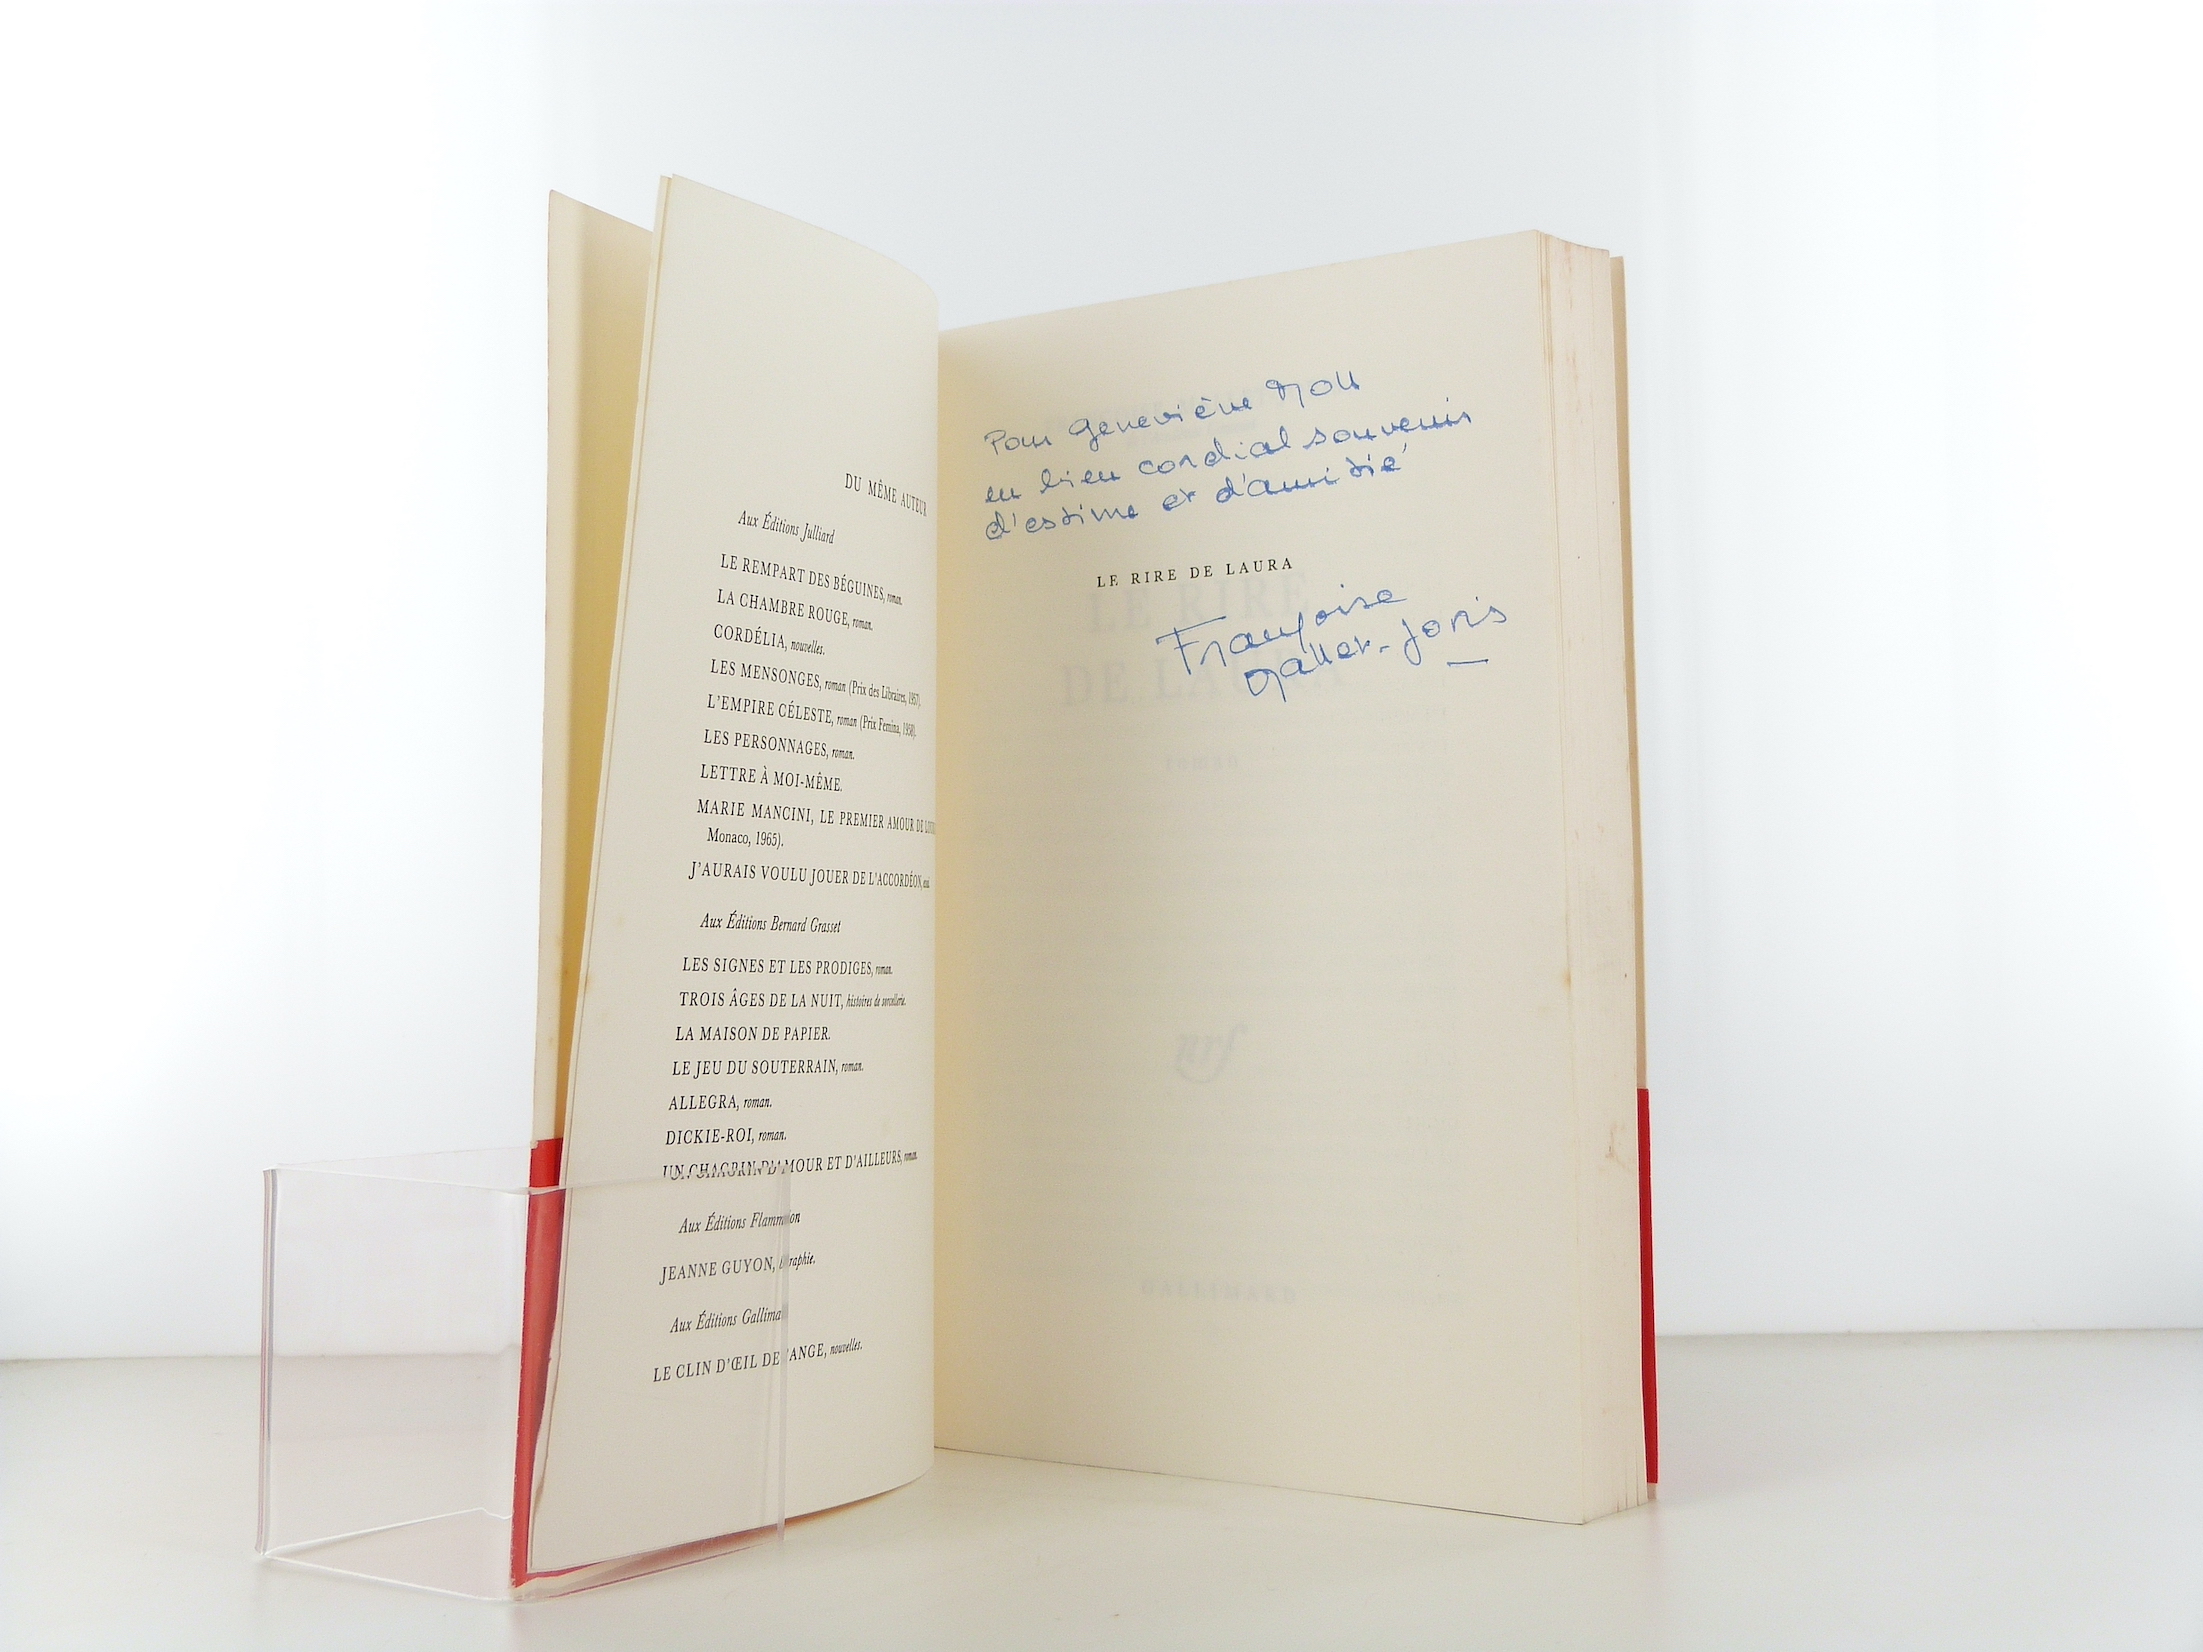 DU MÊME AUTEUR
Aux Éditions Julliard
LE REMPART DES BÉGUINES, roman.
LA CHAMBRE ROUGE, roman.
CORDÉLIA, nouvelles.
LES MENSONGES, roman (Prix des Libraires, 1957).
L'EMPIRE CÉLESTE, roman (Prix Femina, 1958).
LES PERSONNAGES, roman.
LETTRE À MOI-MÊME.
MARIE MANCINI, LE PREMIER AMOUR DE
Monaco, 1965).
J'AURAIS VOULU JOUER DE L'ACCORDÉON,
Aux Éditions Bernard Grasset
LES SIGNES ET LES PRODIGES, roman.
TROIS ÂGES DE LA NUIT, histoires de sorcellerie.
LA MAISON DE PAPIER.
LE JEU DU SOUTERRAIN, roman.
ALLEGRA, roman.
DICKIE-ROI, roman.
UN CHAGRIN D'AMOUR ET D'AILLEURS, roman.
Aux Éditions Flammarion
JEANNE GUYON,
Aux Éditions
LE CLIN D'ŒIL DE L'ANGE, nouvelles.
Pour Geneviève Moll
en bien cordial souvenir
d'estime et d'amitié
LE RIRE DE LAURA
Françoise
Mallet-Joris
LE RIRE
DE LAURA
roman
nrf
GALLIMARD